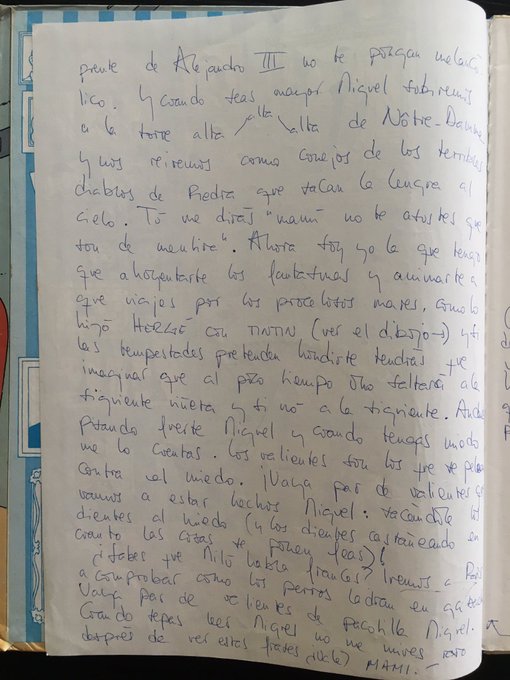 puente de Alejandro III no te pongan melancó
lico. Y cuando seas mayor Miguel subiremos
a la torre alta alta alta de Nôtre-Damme
y nos reiremos como conejos de los terribles
diablos de Piedra que sacan la lengua al
cielo. Tú me dirás "mamá no te asustes que
son de mentira". Ahora soy yo la que tengo
que ahuyentarte los fantasmas y animarte a
que viajes por los procelosos mares, como lo
hizo HERGÉ CON TINTIN (ver el dibujo→) y si
las tempestades pretenden hundirte tendrás que
imaginar que al poco tiempo uno saltará a la
siguiente viñeta y si no a la siguiente. Anda
pitando fuerte Miguel y cuando tengas miedo
me lo cuentas. Los valientes son los que se pelean
contra el miedo. ¡Vaya par de valientes que
vamos a estar hechos Miguel. Sacándole los
dientes al miedo (y los dientes castañeando en
cuanto las cosas se ponen feas)!
¿Sabes que Milú habla francés? Iremos a París
a comprobar como los perros ladran en
Vaya par de valientes de pacotilla Miguel.
Cuando sepas leer Miguel no me mires
después de ver estas frases MAMI.-